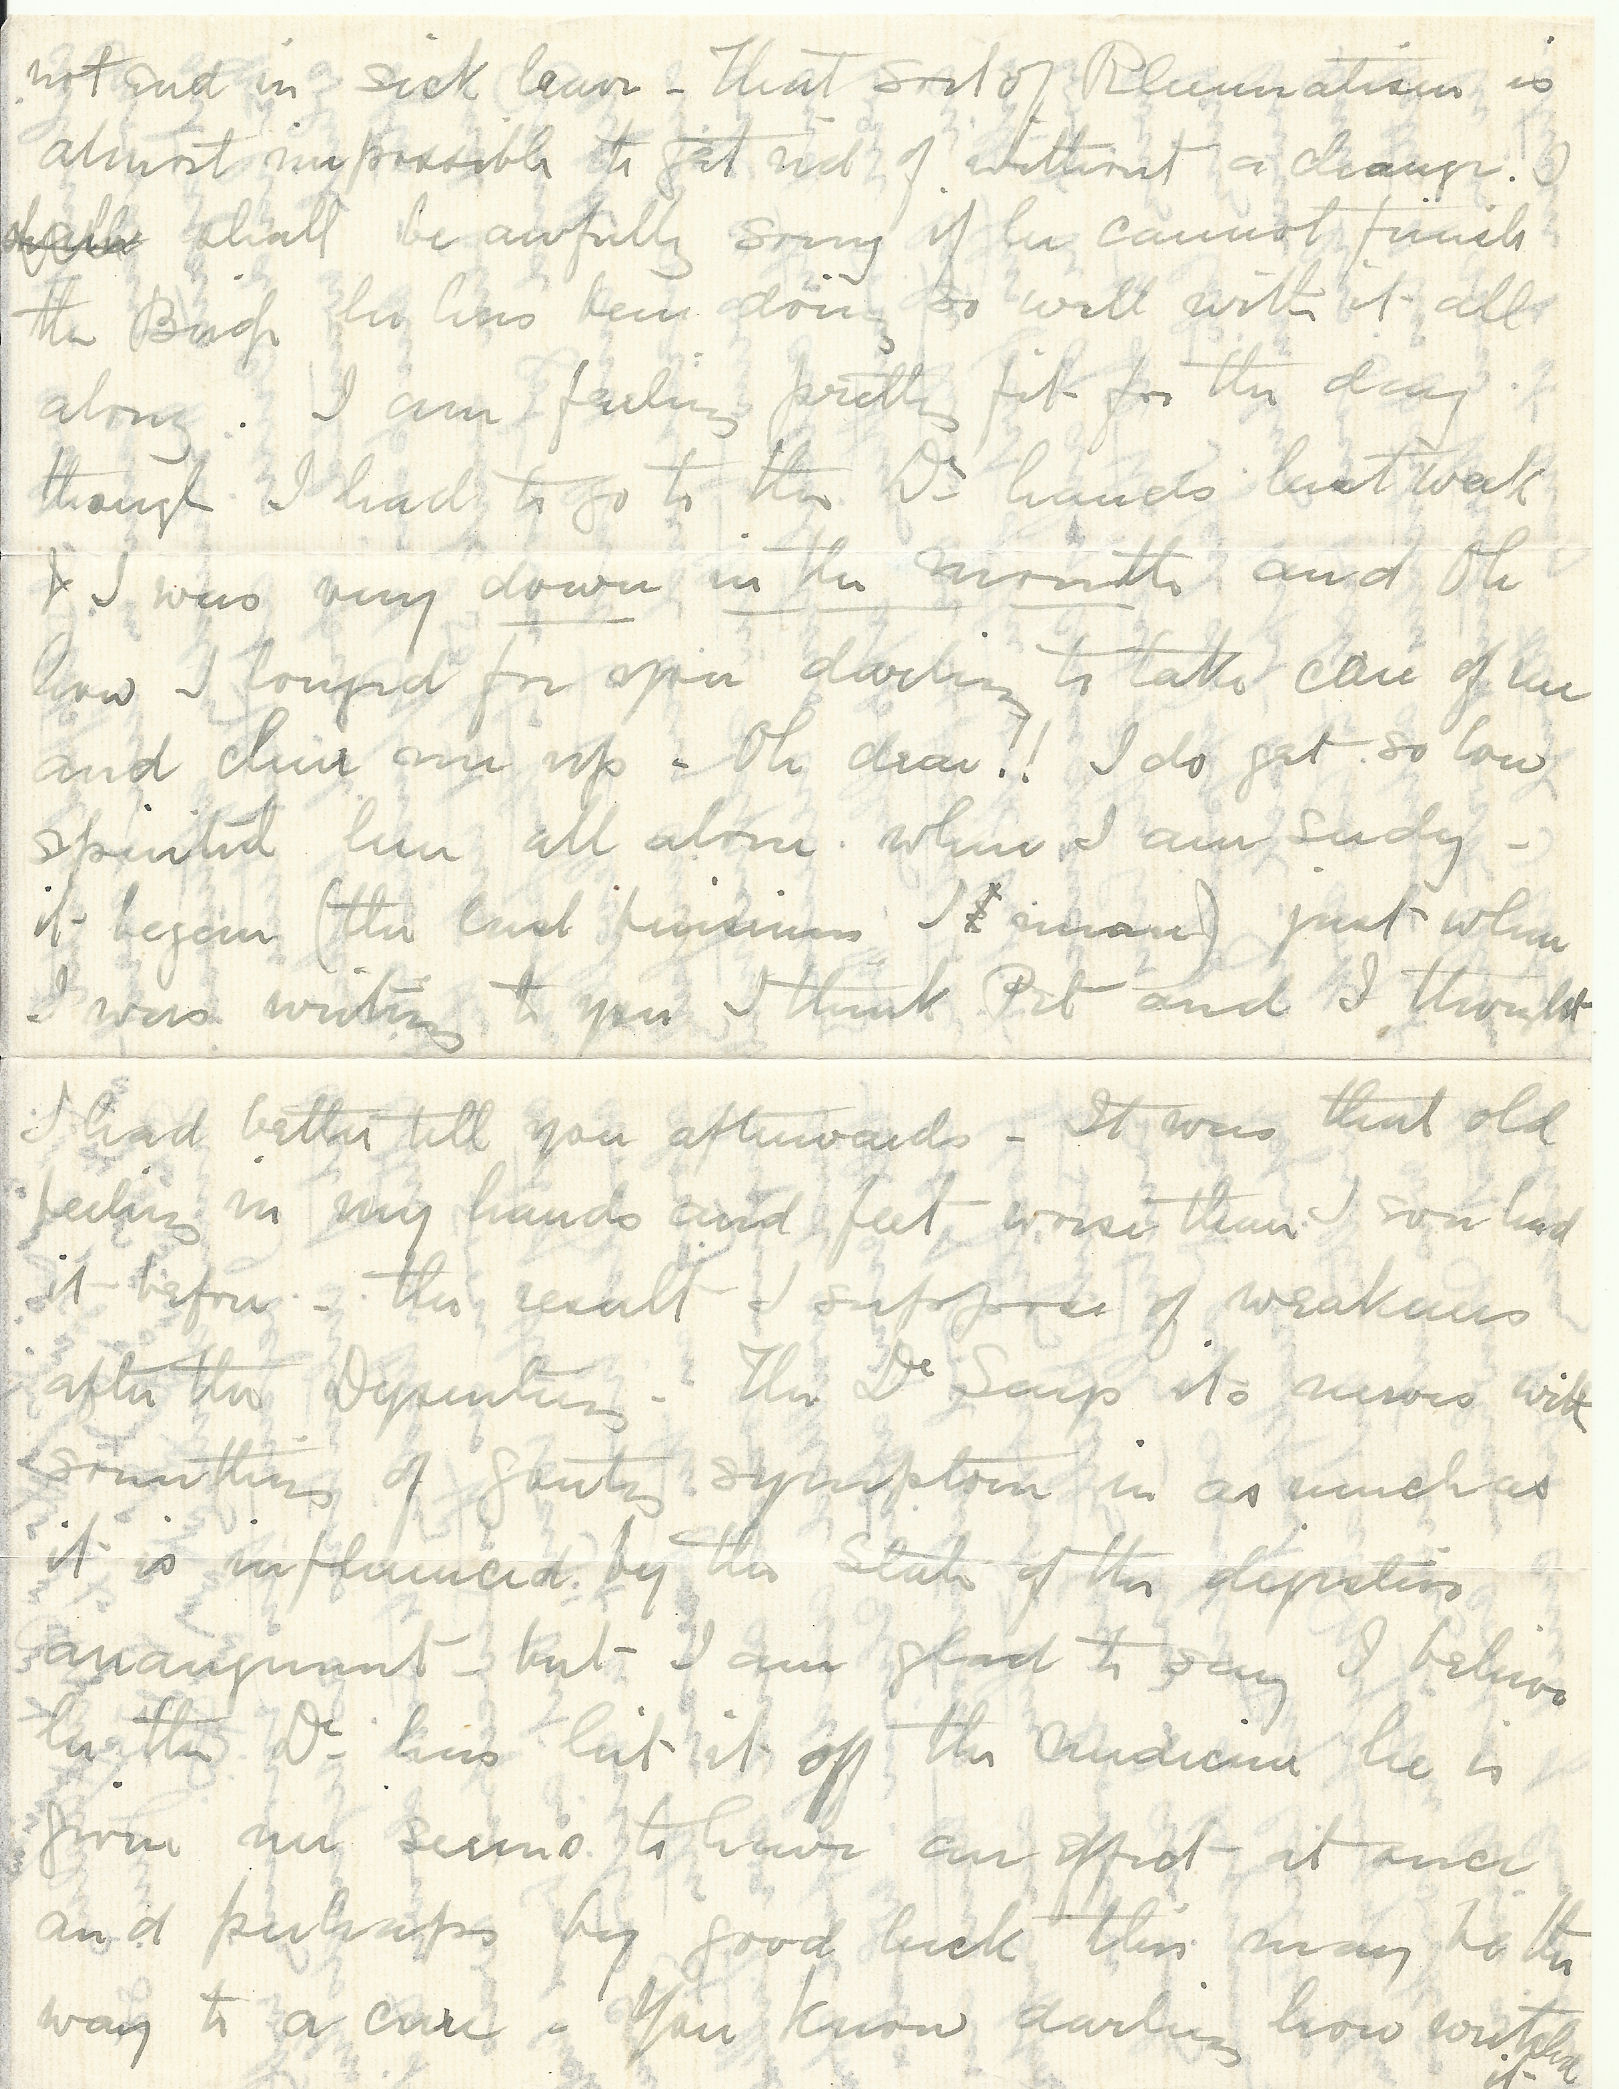 not end in sick leave - That sort of Rheumatism is
almost impossible to get rid of without a change. I
shall be awfully sorry if he cannot finish
the Bridge he has been doing so well with it all
along. I am feeling pretty fit for the day
though I had to go to the Dr hands last week
& I was very down in the mouth and Oh
how I longed for you darling to take care of me
and cheer me up - Oh dear!! I do get so low
spirited here all alone when I am seedy -
it began (the last I mean) just when
I was writing to you I think Pet and I thought
I had better tell you afterwards - It was that old
feeling in my hands and feet worse than I ever had
it before - the result I suppose of weakness
after the Dysentery - The Dr Says its nerves with
something of gouty symptom in as much as
it is influenced by the state of the digestive
arrangement - but I am glad to say I believe
he the Dr has hit it off the medicine he is
giving me seems to have an effect at once
and perhaps by good luck this may be the
way to a cure - You know darling how wretched
it